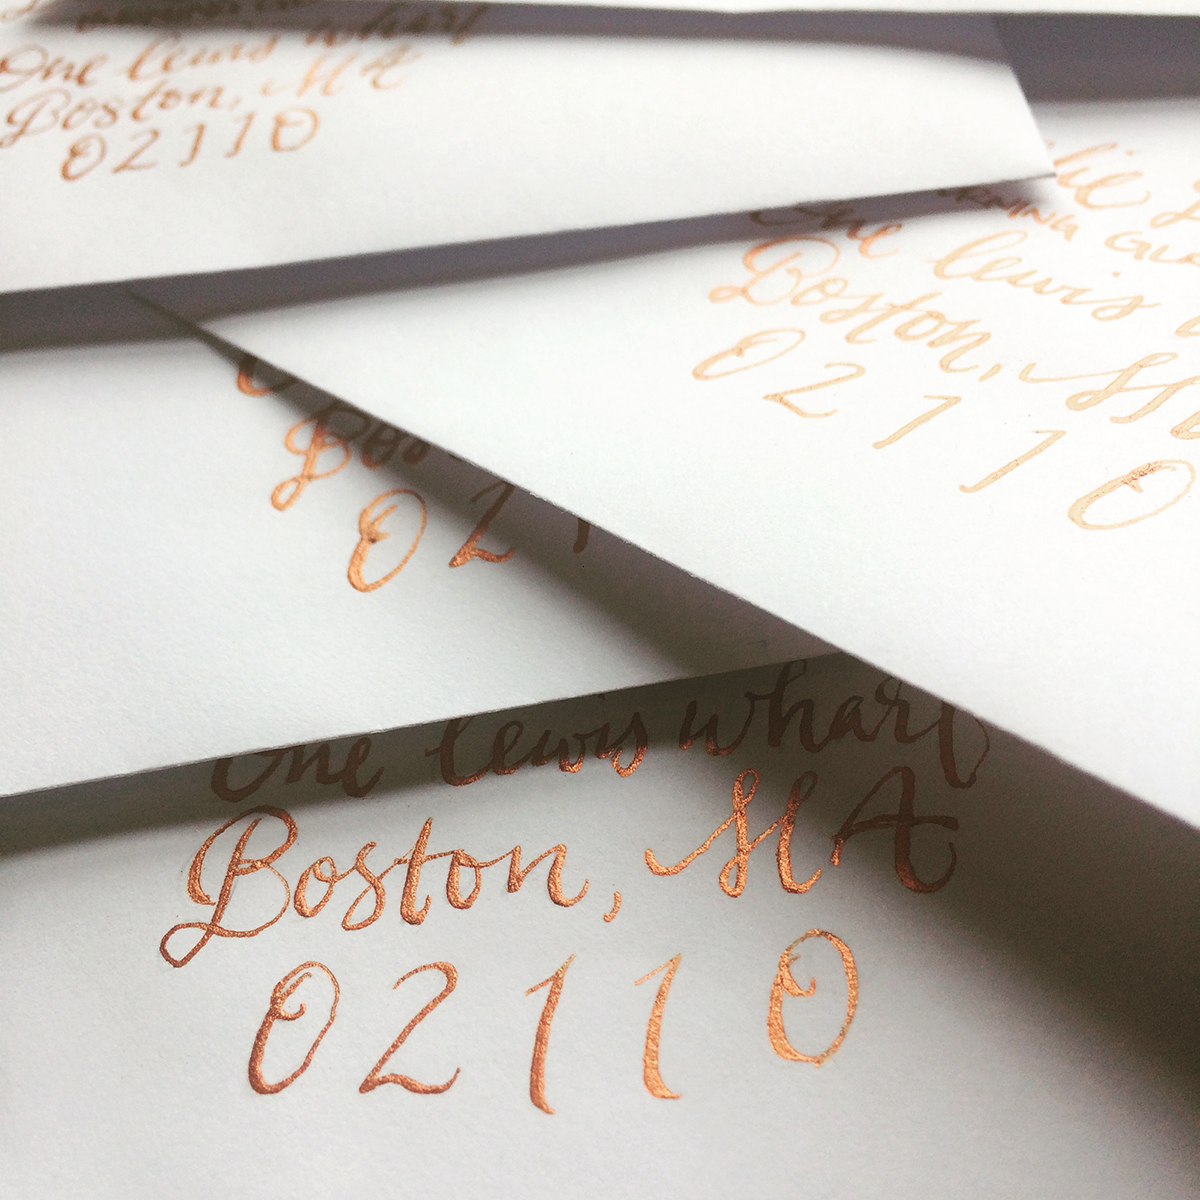 One lewis wharf
Boston, MA
02110
One lewis
Boston, MA
02110
Bos
02
One lewis wharf
Boston, MA
02110